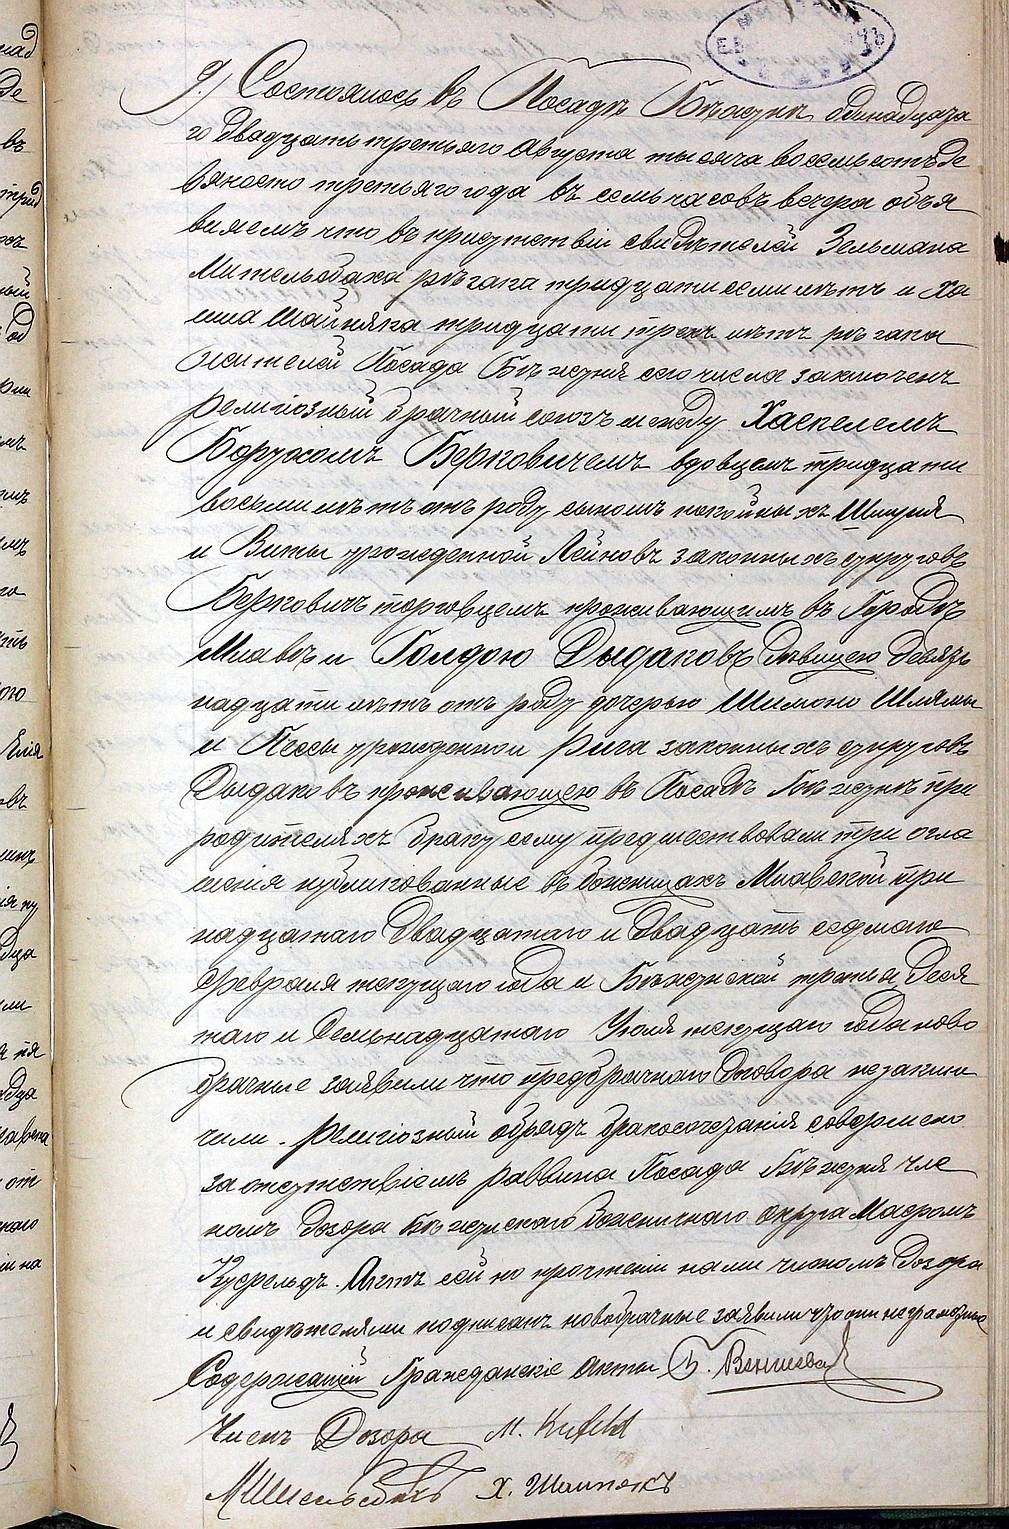 9.) Состоялось въ Посадѣ Бѣжунь одинадцата
го двадцать третьяго Августа тысяча восемьсотъ де
вяносто третьяго года въ семь часовъ вечера объя
вляемъ что въ присутствіи свидѣтелей Зельмана
Мительсбаха рѣзака тридцати семи лѣтъ и Ха
има Шайняка тридцати трехъ лѣтъ рѣзака
жителей Посада Бѣжуня сего числа заключенъ
религіозный брачный союзъ между Хаскелемъ
Борухомъ Берковичемъ вдовцемъ тридцати
восьми лѣтъ отъ роду сыномъ покойныхъ Шмуля
и Виты урожденной Лейновъ законныхъ супруговъ
Берковичъ торговцемъ проживающимъ въ Городѣ
Млавѣ и Голдою Дыдаковъ дѣвицею девять
надцати лѣтъ отъ роду дочерью Шимона Шлямы
и Пессы урожденной Рига законныхъ супруговъ
Дыдаковъ проживающею въ Посадѣ Бѣжунь при
родителяхъ браку сему предшествовали три огла
шенія публикованные въ божницахъ Млавской три
надцатаго двадцатаго и двадцать седмого
Февраля текущаго года и Бѣжунской третья деся
таго и семьнадцатаго Іюля текущаго года ново
брачные заявили что предбрачнаго договора незаклю
чили. Религіозный обрядъ бракосочетанія совершено
за отсутствіемъ раввина Посада Бѣжуня чле
номъ Дозора Бѣжунскаго Божничнаго округа Маеромъ
Куфельдъ. Актъ сей по прочтеніи нами членомъ Дозора
и свидѣтелями подписанъ новобрачные заявили что они неграмотные
Содержащій Гражданскіе Акты
Членъ Дозора M. Kufeld
Х. Шайнякъ